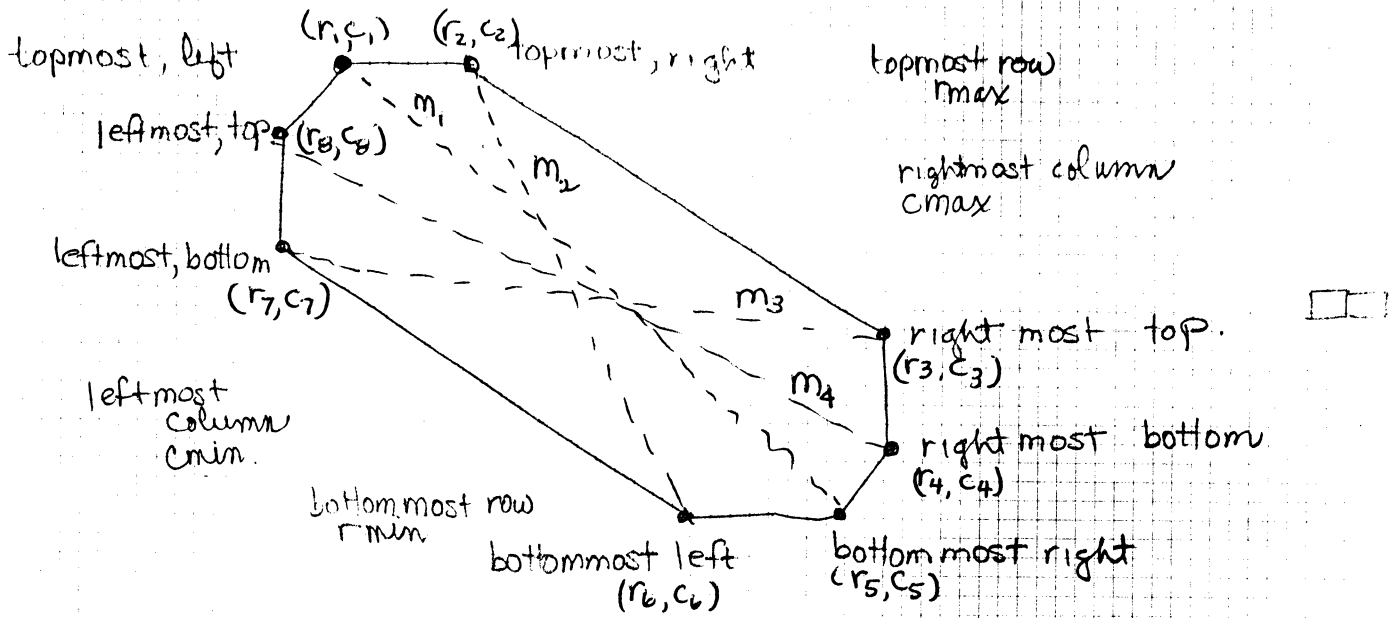 (r₁,c₁)
(r₂,c₂)
topmost, left
topmost, right
topmost row
rmax
m₁
leftmost, top
(r₈,c₈)
m₂
rightmost column
cmax
leftmost, bottom
(r₇,c₇)
m₃
right most top.
(r₃,c₃)
leftmost
column
cmin.
m₄
right most bottom
(r₄,c₄)
bottommost row
rmin
bottommost left
(r₆,c₆)
bottommost right
(r₅,c₅)